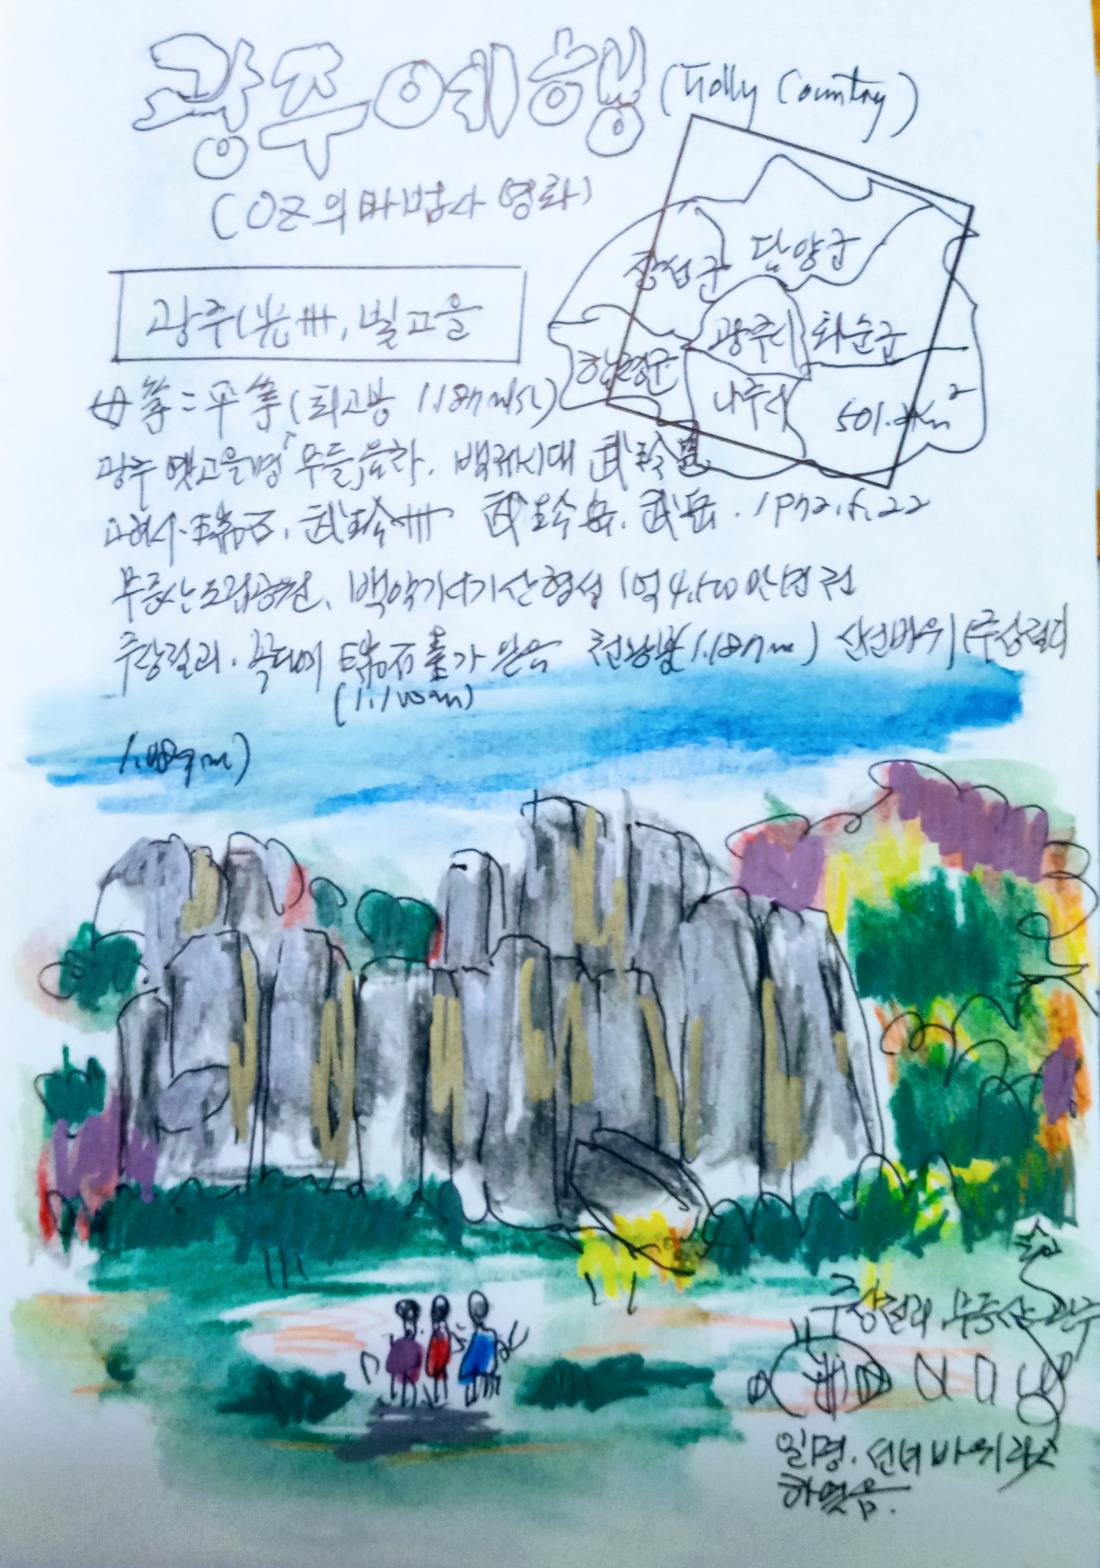 광주예행 (Holly Country)
(OZ의 마법사 영화)
장성군 담양군
광주시 화순군
함평군 나주시 501.㎢
광주(光州, 빛고을
母峯=平峯(최고봉 1.187m
광주 옛고을명 「무들」이라. 백제시대 武珍
고려시 瑞石. 武珍州 武珍岳. 武岳. 1972.5.22
무등산도립공원. 백악기시기 산형성 1억4,500만년전
주상절리. 꼭대기 瑞石臺가 있음 천왕봉(1.187m) 입석바위(주상절리
(1.100m)
m)
주상절리 무등산 광주
일명. 선녀바위라
하였음.